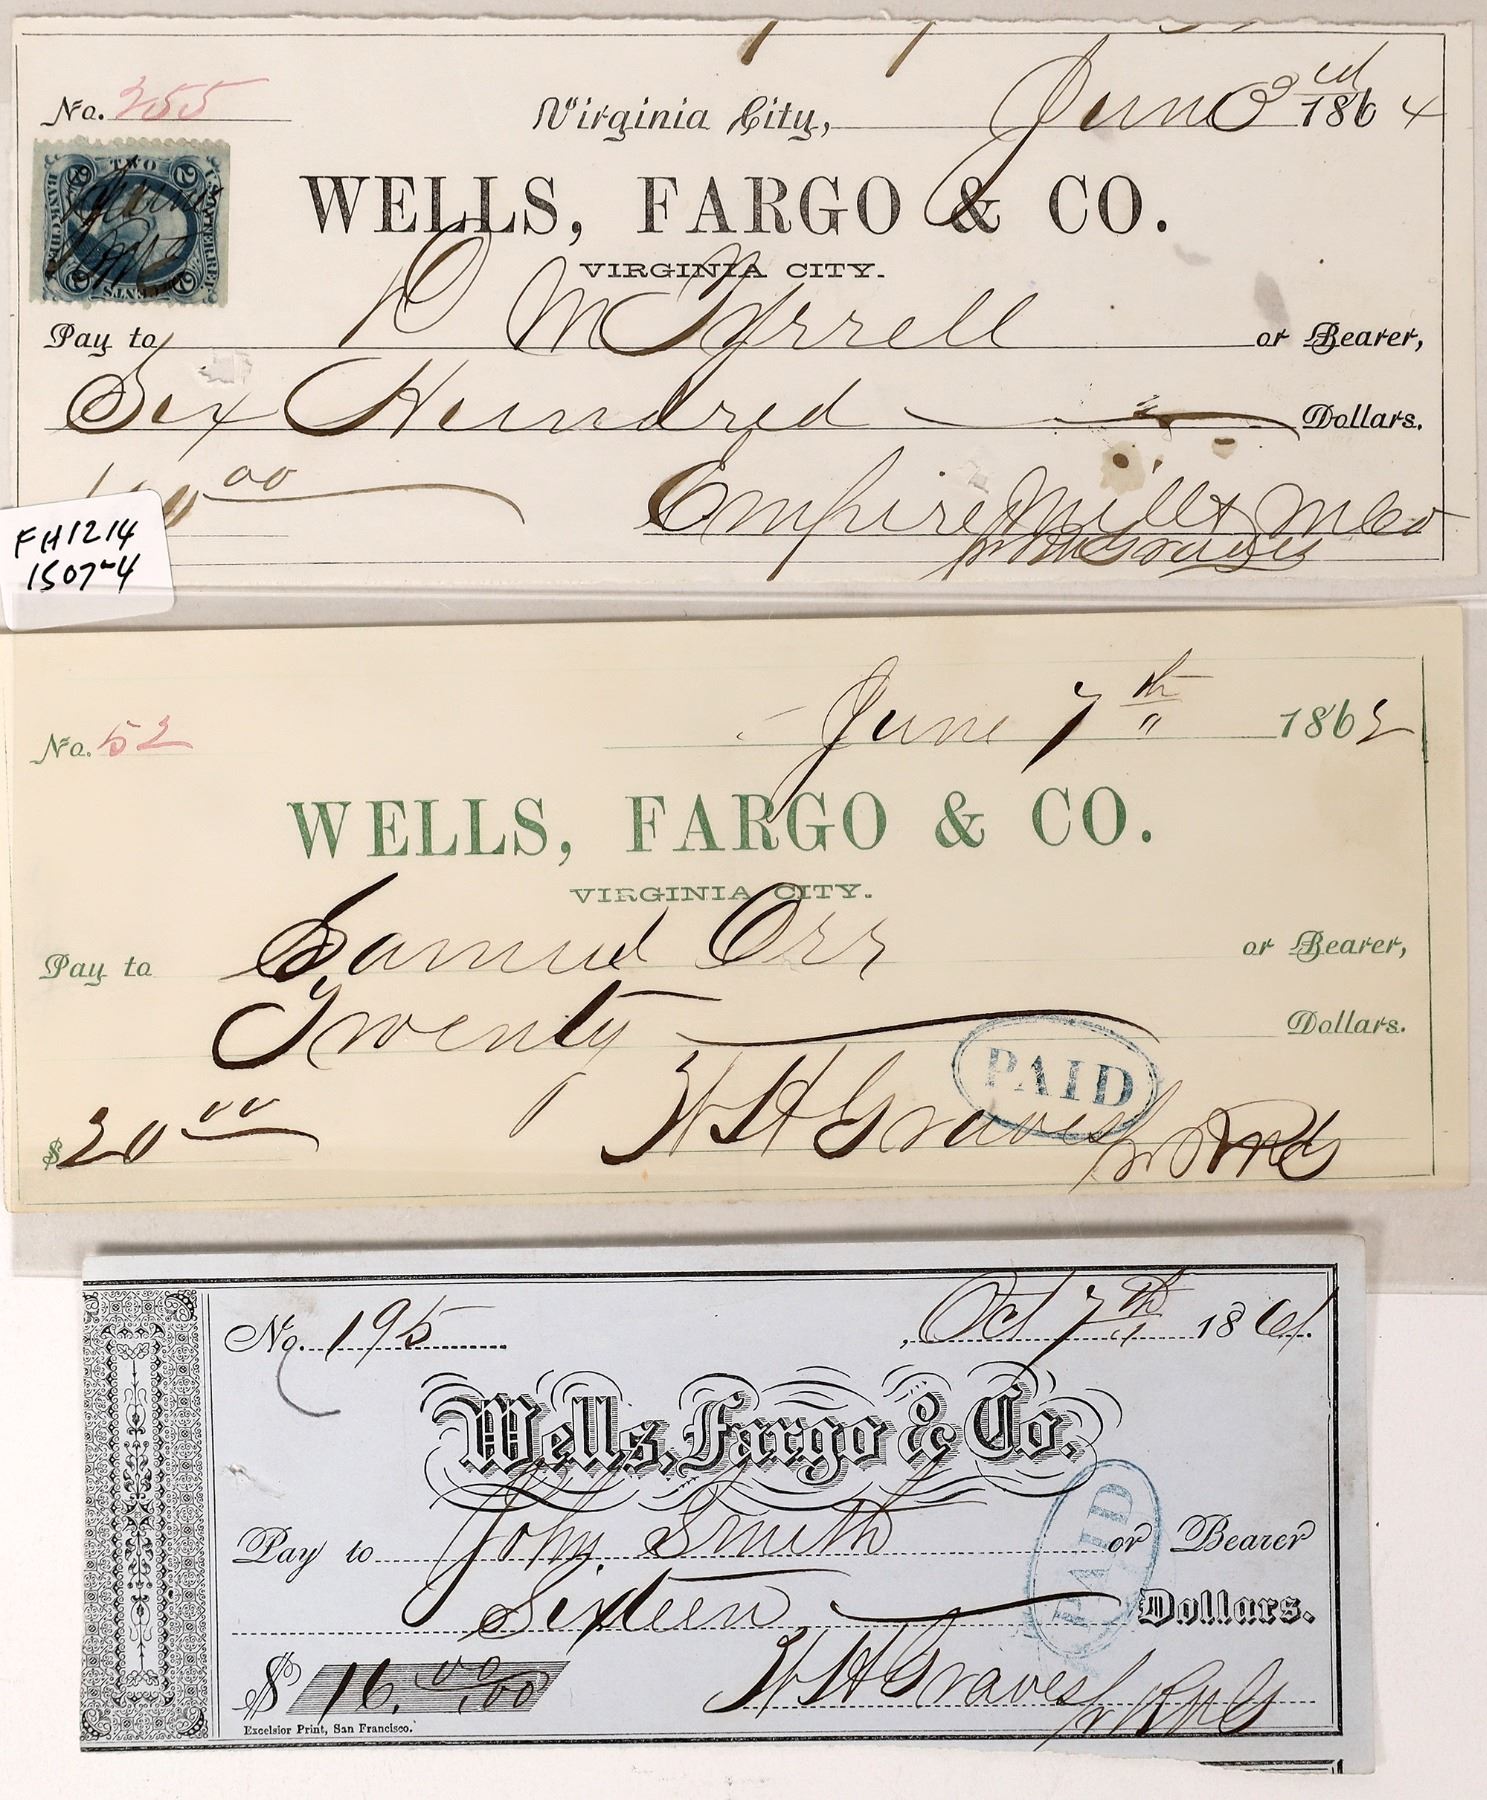 No. 255
Virginia City, June 3rd 1864
WELLS, FARGO & CO.
VIRGINIA CITY.
U.S. INTER. REV.
TWO
2 2
BANK CHECK
CENTS
2 2
June
Pay to D M Tyrrell or Bearer,
Six Hundred Dollars.
600 00
Empire Mill & M Co
pr RM Graves
FH1214
1507-4
No. 52
June 7th " 1862
WELLS, FARGO & CO.
VIRGINIA CITY.
Pay to Samuel Orr or Bearer,
Twenty Dollars.
PAID
$20 00
W H Graves
No. 195
Oct 7th " 1861.
Wells, Fargo & Co.
Pay to John Smith or Bearer
Sixteen Dollars.
PAID
$ 16. 00/100
W H Graves
Excelsior Print, San Francisco.